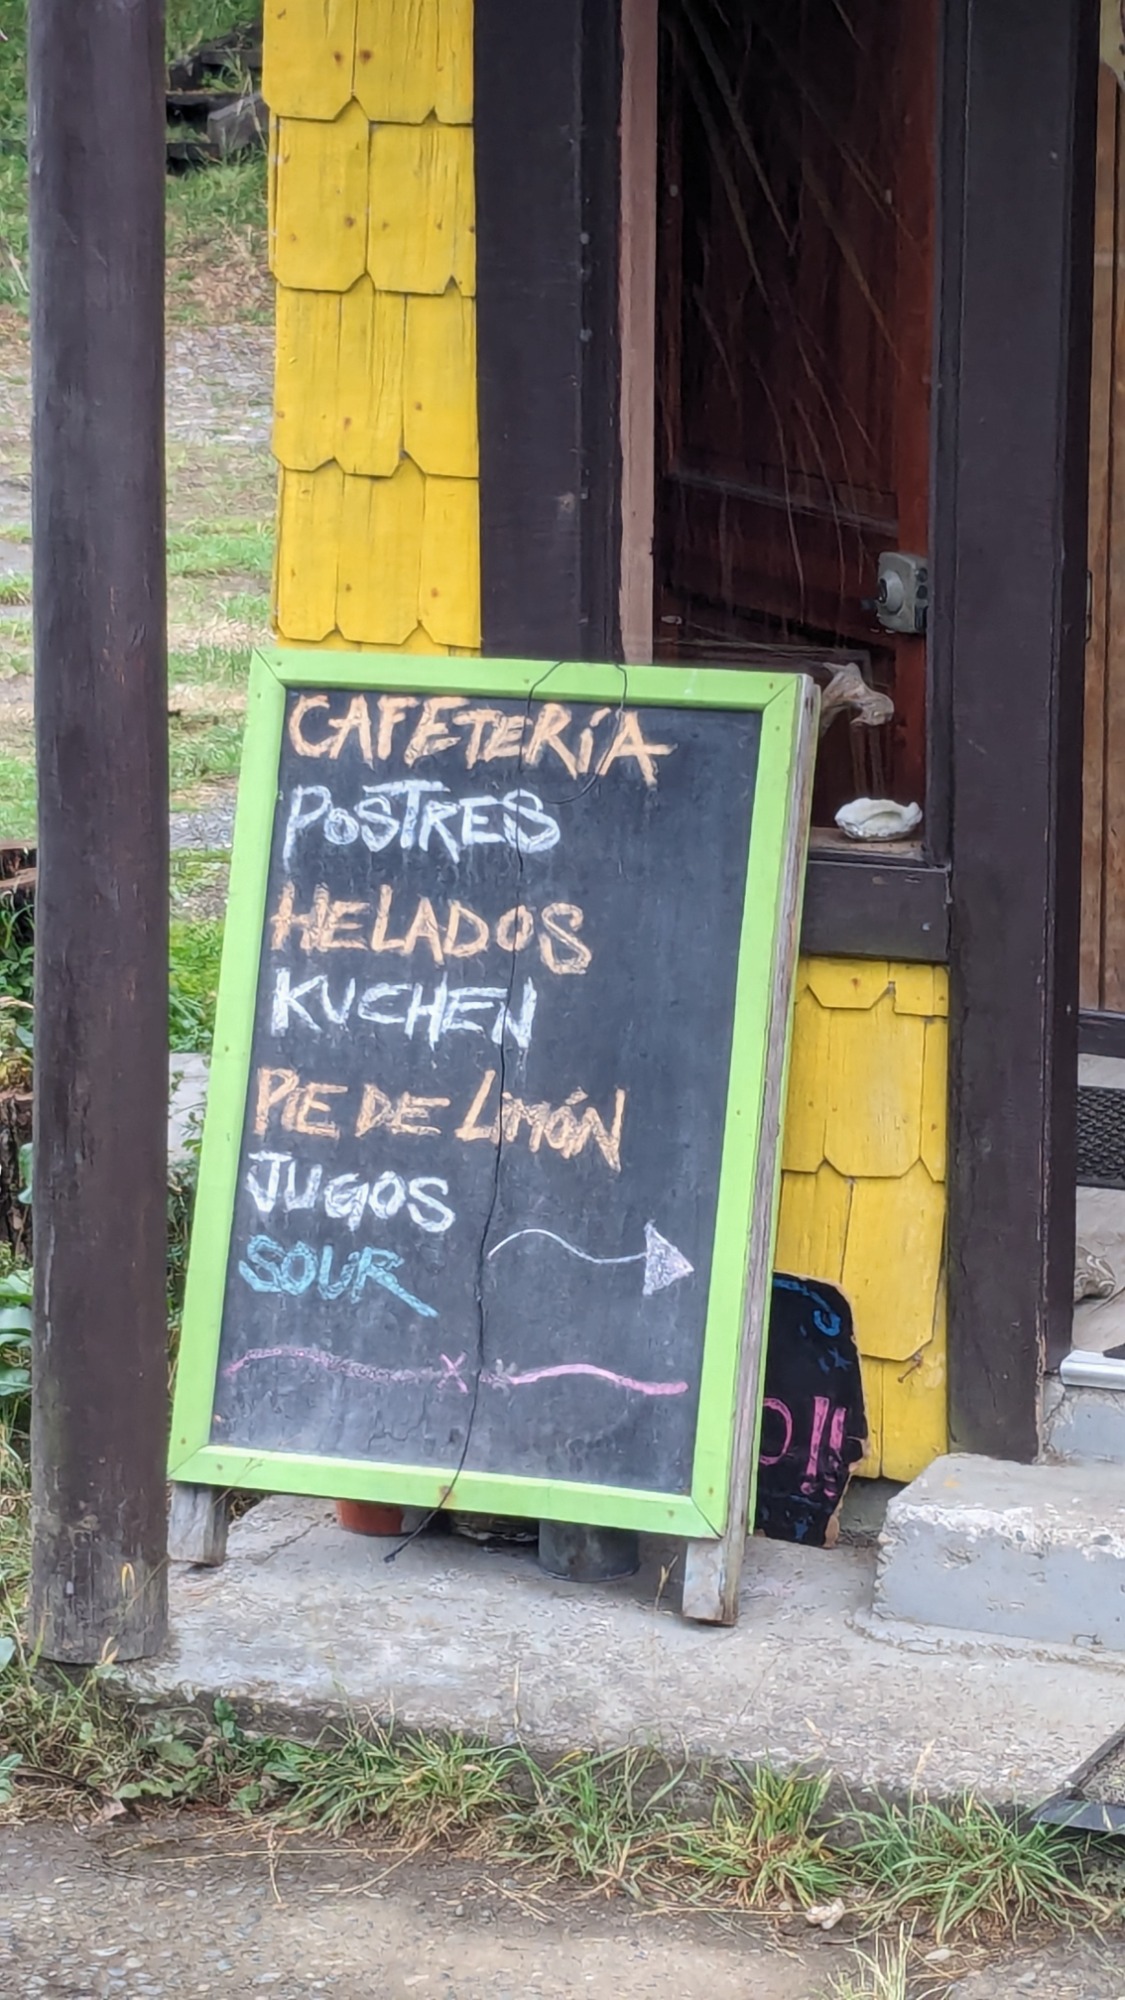 CAFETERÍA
POSTRES
HELADOS
KUCHEN
PIE DE LIMÓN
JUGOS
SOUR
O!!